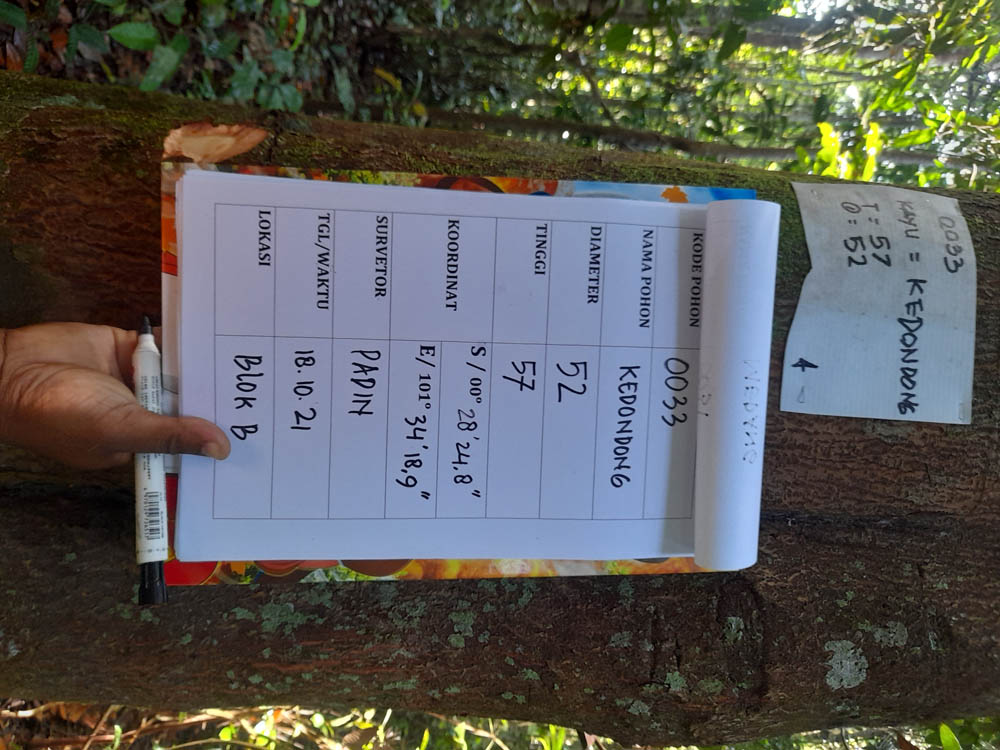 0033
KAYU = KEDONDONG
T = 57
Ø = 52
A
MEDANG
KODE POHON 0033
NAMA POHON KEDONDONG
DIAMETER 52
TINGGI 57
KOORDINAT S / 00° 28'24.8"
E/ 101° 34'18,9"
SURVETOR PADIN
TGL/WAKTU 18.10.21
LOKASI BLOK B